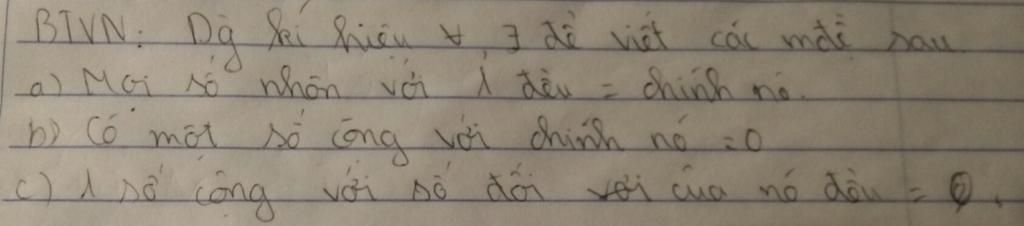 BTVN: Dg kí hiệu ∀, ∃ để viết các mđề sau
a) Mọi số nhân với 1 đều = chính nó.
b) Có một số cộng với chính nó = 0
c) 1 số cộng với số đối của nó đều = 0.